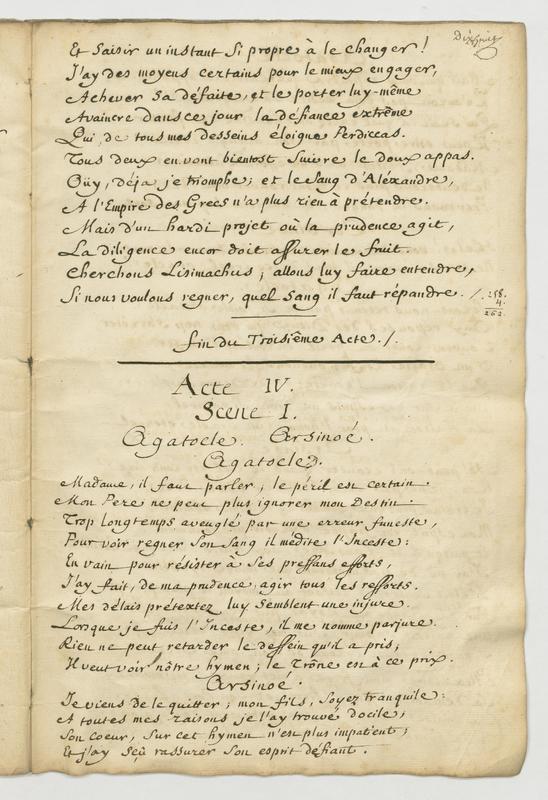 Dixhuit
Et Saisir un instant Si propre à le changer !
J'ay des moyens certains pour le mieux engager,
Achever Sa défaite, et le porter luy-même
A vaincre dans ce jour la défiance extrême
Qui de tous mes desseins éloigne Perdiccas.
Tous deux en vont bientost Suivre le doux appas.
Oüy, déja je triomphe ; et le Sang d'Aléxandre,
A l'Empire des Grecs n'a plus rien à prétendre.
Mais d'un hardi projet où la prudence agit,
La diligence encor doit assurer le fruit.
Cherchons Lisimachus ; allons luy faire entendre,
Si nous voulons regner, quel Sang il faut répandre. /.
258.
4.
262.
fin du Troisième Acte. /.
Acte IV.
Scene I.
Agatocle. Arsinoé.
Agatocle.
Madame, il faut parler, le péril est certain.
Mon Pere ne peut plus ignorer mon Destin.
Trop longtemps aveuglé par une erreur funeste,
Pour voir regner Son Sang il médite l'Inceste :
En vain pour résister à Ses pressans efforts,
J'ay fait, de ma prudence, agir tous les ressorts.
Mes délais prétextez luy Semblent une injure.
Lorsque je fuis l'Inceste, il me nomme parjure.
Rien ne peut retarder le dessein qu'il a pris ;
Il veut voir nôtre hymen ; le Trône est à ce prix.
Arsinoé.
Je viens de le quitter ; mon fils, Soyez tranquile :
Et toutes mes raisons je l'ay trouvé docile ;
Son coeur, Sur cet hymen n'est plus impatient ;
Et j'ay Sçû rassurer Son esprit défiant.